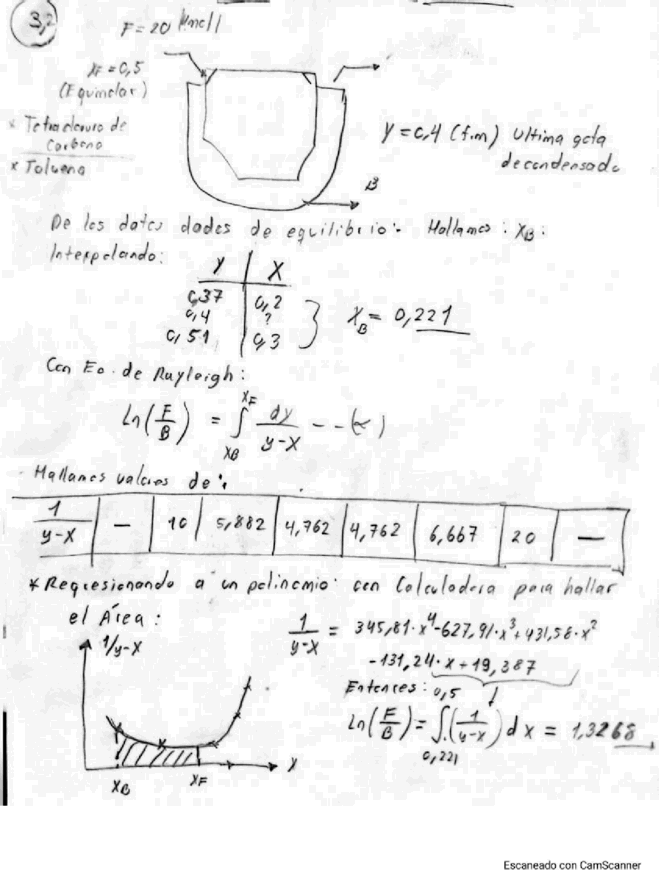 3,2
F = 20 Kmol
XF = 0,5
(Equimolar)
* Tetracloruro de
Carbono
* Tolueno
Y = 0,4 (f.m) Ultima gota
de condensado
B
De los datos dados de equilibrio:- Hallamos: XB:
Interpolando:
Y | X
0,37 | 0,2
0,4 | ?
0,51 | 0,3
XB = 0,221
Con Eo. de Rayleigh:
Ln(F/B) = ∫ XB XF dy/y-x --- (α)
- Hallamos valores de:
1/y-x | — | 10 | 5,882 | 4,762 | 4,762 | 6,667 | 20 | —
* Regresionando a un polinomio con Calculadora para hallar
el Área:
1/y-x = 345,81·x⁴-627,91·x³+431,58·x²
-131,24·x+19,387
1/y-x
Entonces:
Ln(F/B) = ∫ 0,221 0,5 (1/y-x) dx = 1,3268
X
XB XF
Escaneado con CamScanner